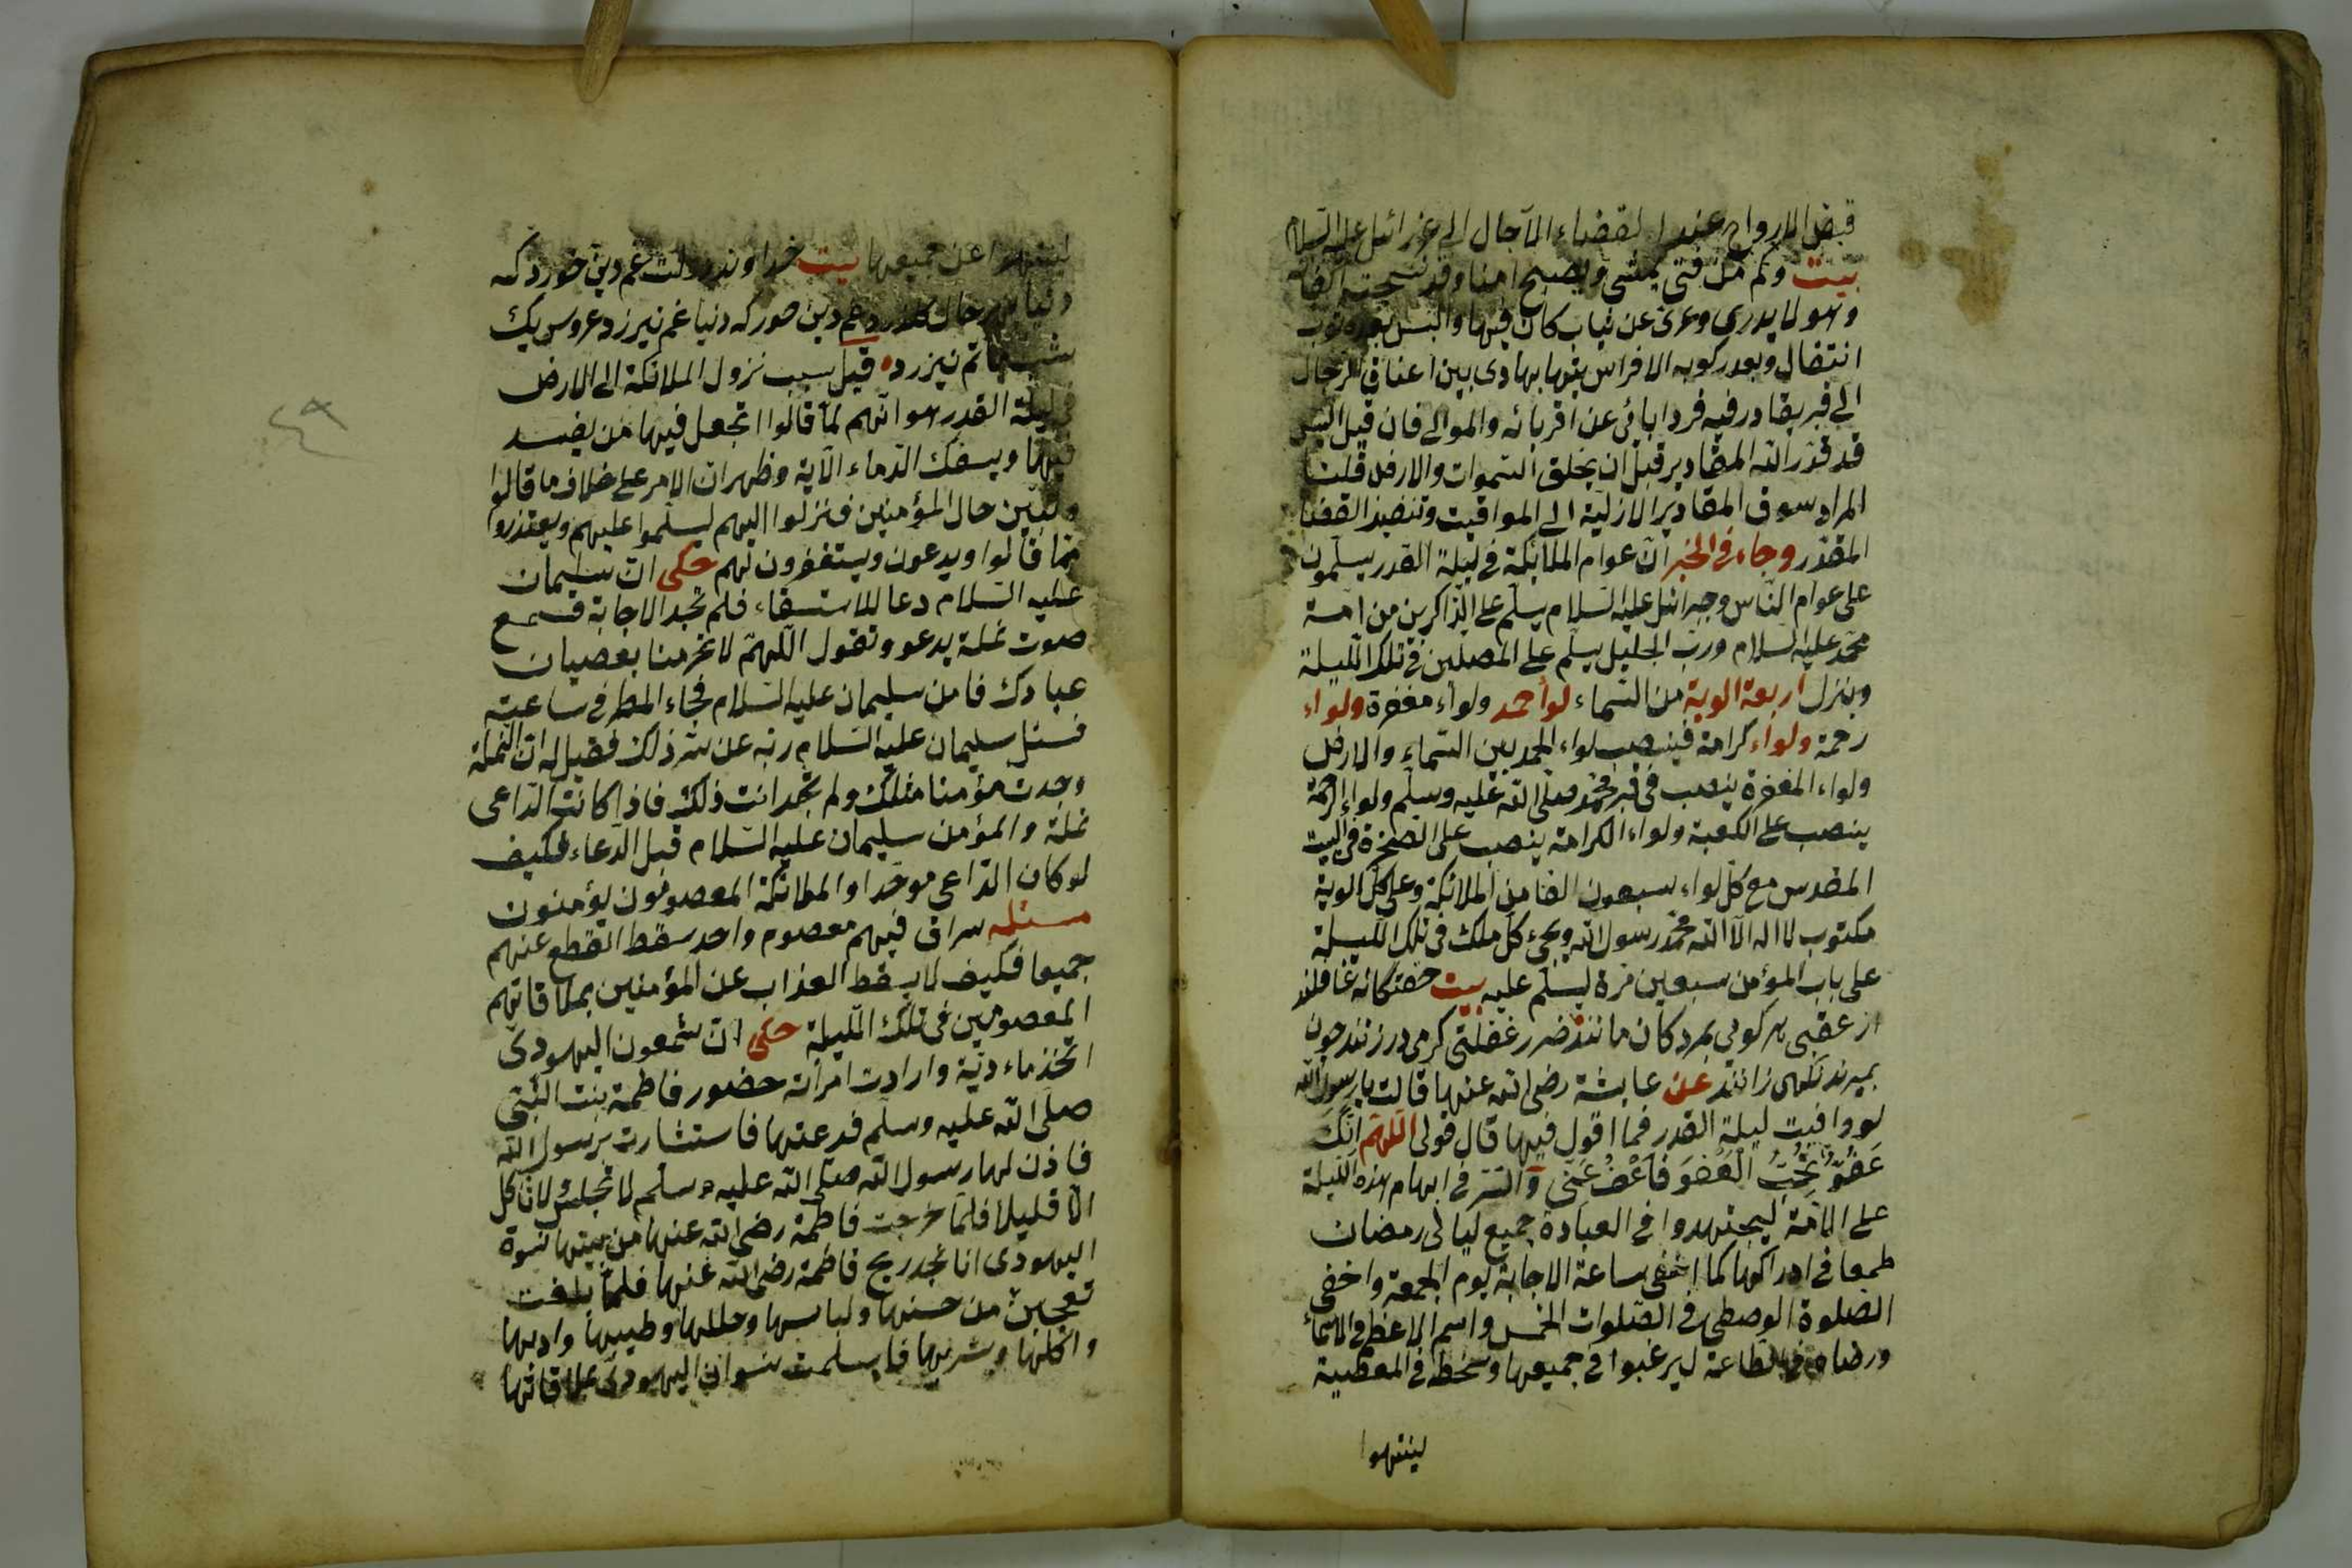 قبض الارواح عند القضاء الآجال الى عزرائيل عليه السلام
بيت وكم من فتى يمشي ويصبح آمنا وقد نسجت اكفانه
وهو لا يدري وعرى عن ثياب كان فيها والبس بعده ثوب
انتقال وبعد ركوبه الافراس يتها بهادى بين اعناق الرجال
الى قبر يغادر فيه فردا نائ عن اقربائه والموالى فان قيل اليس
قد قدر الله المقادير قبل ان يخلق السموات والارض قلت
المراد سوق المقادير الازلية الى المواقيت وتنفيذ القضاء
المقدر وجاء في الخبر ان عوام الملائكة في ليلة القدر يسلمون
على عوام الناس وجبرائيل عليه السلام يسلم على الذاكرين من امة
محمد عليه السلام ورب الجليل يسلم على المصلين في تلك الليلة
وينزل اربعة الوية من السماء لواء حمد ولواء مغفرة ولواء
رحمة ولواء كرامة فينصب لواء الحمد بين السماء والارض
ولواء المغفرة ينصب في قبر محمد صلى الله عليه وسلم ولواء الرحمة
ينصب على الكعبة ولواء الكرامة ينصب على الصخرة في البيت
المقدس مع كل لواء سبعون الفا من الملائكة وعلى كل الوية
مكتوب لا اله الا الله محمد رسول الله ويجئ كل ملك في تلك الليلة
على باب المؤمن سبعين مرة ليسلم عليه بيت غافلند
از عقبى
بميرند عن عايشة رضى الله عنها قالت يا رسول الله
لو وافيت ليلة القدر فما اقول فيها قال قولى اللهم انك
عَفُوٌّ تُحِبُّ الْعَفْوَ فَاعْفُ عَنِّي والسر في ابهام هذه الليلة
على الامة ليجتهدوا في العبادة جميع ليالى رمضان
طمعا في ادراكها كما اخفى ساعة الاجابة يوم الجمعة واخفى
الصلوة الوصطى في الصلوات الخمس واسم الاعظم في الاسماء
ورضاه في الطاعة ليرغبوا في جميعها وسخط في المعصية
لينتهوا
لينتهوا عن جميعها بيت غم دين خورد كه
غم دين خور كه دنيا غم نيرزد عروس يك
ماتم نيرزد قيل سبب نزول الملائكة الى الارض
في ليلة القدر هو انهم لما قالوا اتجعل فيها من يفسد
فيها ويسفك الدماء الآية وظهر ان الامر على خلاف ما قالوا
وتبين حال المؤمنين فنزلوا اليهم ليسلموا عليهم ويعتذروا
مما قالوا ويدعون ويستغفرون لهم حكى ان سليمان
عليه السلام دعا للاستسقاء فلم تجد الاجابة فسمع
صوت نملة يدعو وتقول اللهم لا تحرمنا بعصيان
عبادك فامن سليمان عليه السلام فجاء المطر في ساعته
فسئل سليمان عليه السلام ربه عن سر ذلك فقيل له ان النملة
وجدت مؤمنا مثلك ولم تجد انت ذلك فاذا كانت الداعى
نملة والمؤمن سليمان عليه السلام قبل الدعاء فكيف
لو كان الداعى موحدا والملائكة المعصومون يؤمنون
مسئله سراق فيهم معصوم واحد سقط القطع عنهم
جميعا فكيف لا يسقط العذاب عن المؤمنين بملاقاتهم
المعصومين في تلك الليلة حكى ان شمعون اليهودى
اتخذ وارادت امرأته حضور فاطمة بنت النبى
صلى الله عليه وسلم فدعتها فاستشارت برسول الله
فاذن لها رسول الله صلى الله عليه وسلم لا تجلس لا تأكل
الا قليلا فلما خرجت فاطمة رضى الله عنها من بيتها نسوة
اليهودى انا نجد ريح فاطمة رضى الله عنها فلما بلغت
تعجبن من حسنها ولباسها وحللها وطيبها وادبها
واكلها وشربها فاسلمت نسوان اليهودى بملاقاتها